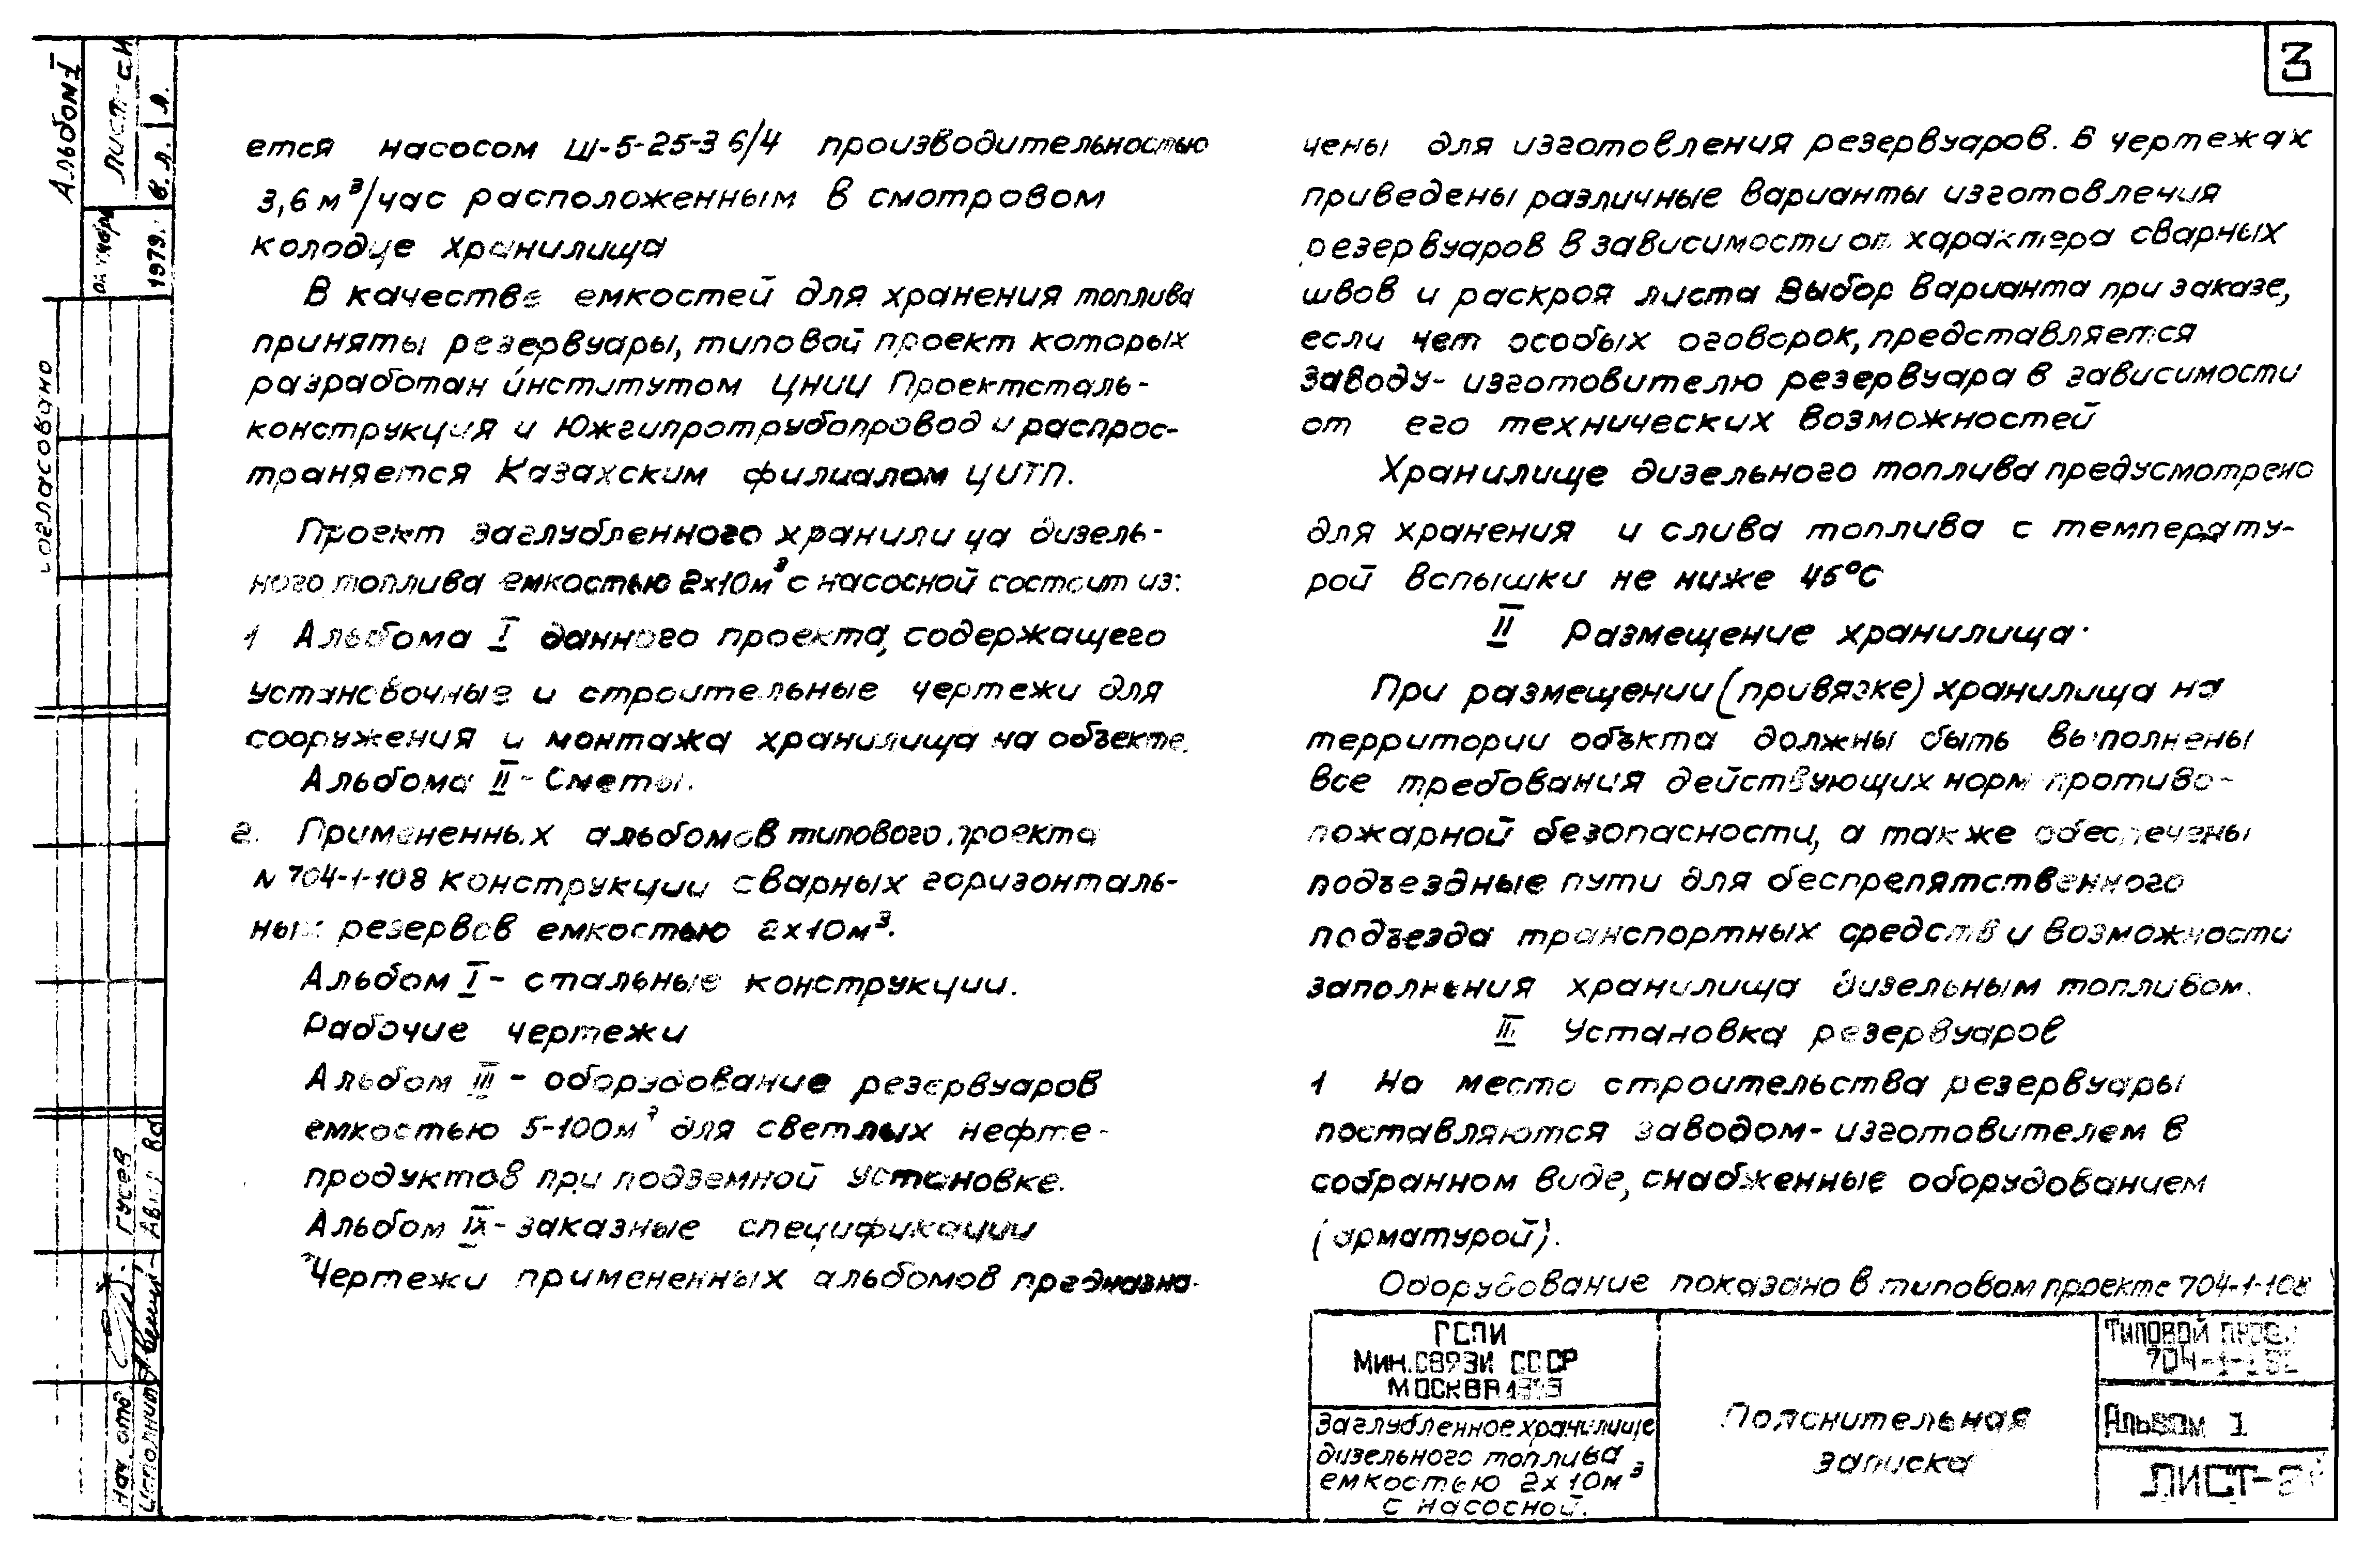 3
ется насосом Ш-5-25-3 6/4 производительностью
3,6 м³/час расположенным в смотровом
колодце хранилища
В качестве емкостей для хранения топлива
приняты резервуары, типовой проект которых
разработан институтом ЦНИИ Проектсталь-
конструкция и Южгипротрубопровод и распрос-
траняется Казахским филиалом ЦИТП.
Проект заглубленного хранилища дизель-
ного топлива емкостью 2х10м³ с насосной состоит из:
1 Альбома I данного проекта, содержащего
установочные и строительные чертежи для
сооружения и монтажа хранилища на объекте.
Альбома II - Сметы.
2. Примененных альбомов типового проекта
N 704-1-108 Конструкции сварных горизонталь-
ных резервов емкостью 2х10м³.
Альбом I - стальные конструкции.
Рабочие чертежи
Альбом III - оборудование резервуаров
емкостью 5-100м³ для светлых нефте-
продуктов при подземной установке.
Альбом IX - заказные спецификации
Чертежи примененных альбомов предназна-
чены для изготовления резервуаров. В чертежах
приведены различные варианты изготовления
резервуаров в зависимости от характера сварных
швов и раскроя листа Выбор варианта при заказе,
если нет особых оговорок, представляется
заводу- изготовителю резервуара в зависимости
от его технических возможностей
Хранилище дизельного топлива предусмотрено
для хранения и слива топлива с температу-
рой вспышки не ниже 45°С
II Размещение хранилища.
При размещении (привязке) хранилища на
территории объкта должны быть выполнены
все требования действующих норм противо-
пожарной безопасности, а также обеспечены
подъездные пути для беспрепятственного
подъезда транспортных средств и возможности
заполнения хранилища дизельным топливом.
III Установка резервуаров
1 На место строительства резервуары
поставляются заводом- изготовителем в
собранном виде, снабженные оборудованием
(арматурой).
Оборудование показано в типовом проекте 704-1-108
ГСПИ
Мин.связи СССР
Москва 1979
Заглубленное хранилище
дизельного топлива
емкостью 2х10м³
с насосной.
Пояснительная
записка
Типовой
704-1-
Альбом 1
Лист-
Альбом I
Лист
октябрь
1979.
в.л. л.
согласовано
Гусев
Нач. отд
Исполнит